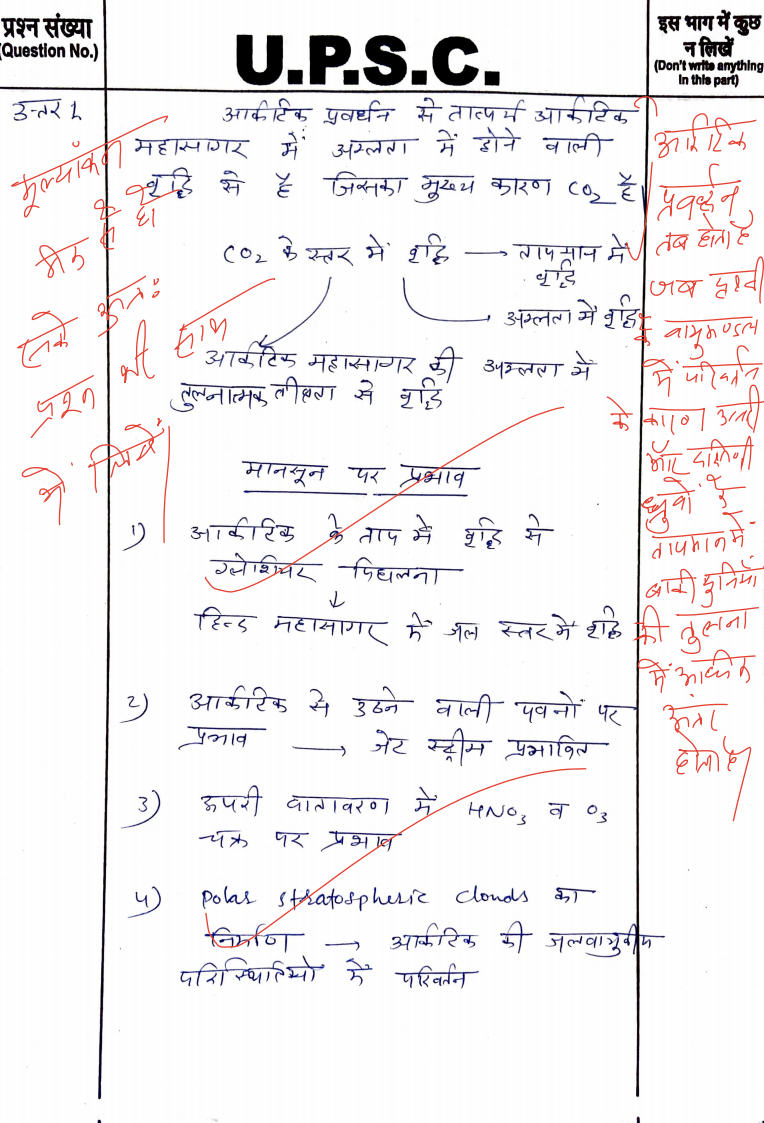 प्रश्न संख्या
(Question No.)
U.P.S.C.
इस भाग में कुछ
न लिखें
(Don't write anything
in this part)
उत्तर 1
आर्कटिक प्रवर्धन से तात्पर्य आर्कटिक
महासागर में अम्लता में होने वाली
वृद्धि से है जिसका मुख्य कारण CO₂ है
CO₂ के स्तर में वृद्धि → तापमान में
वृद्धि
अम्लता में वृद्धि
आर्कटिक महासागर की अम्लता में
तुलनात्मक तीव्रता से वृद्धि
मानसून पर प्रभाव
1) आर्कटिक के ताप में वृद्धि से
ग्लेशियर पिघलना
↓
हिन्द महासागर में जल स्तर में वृद्धि
2) आर्कटिक से उठने वाली पवनों पर
प्रभाव → जेट स्ट्रीम प्रभावित
3) ऊपरी वातावरण में HNO₃ व O₃
चक्र पर प्रभाव
4) Polar stratospheric clouds का
निर्माण → आर्कटिक की जलवायुवीय
परिस्थितियों में परिवर्तन
मूल्यांकन
ठीक से हो
सके अतः
प्रश्न भी साथ
में लिखें
आर्कटिक
प्रवर्धन
तब होता है
जब पृथ्वी
के वायुमण्डल
में परिवर्तन
के कारण उत्तरी
और दक्षिणी
ध्रुवों के
तापमान में
बाकी दुनिया
की तुलना
में अधिक
अंतर
होता है